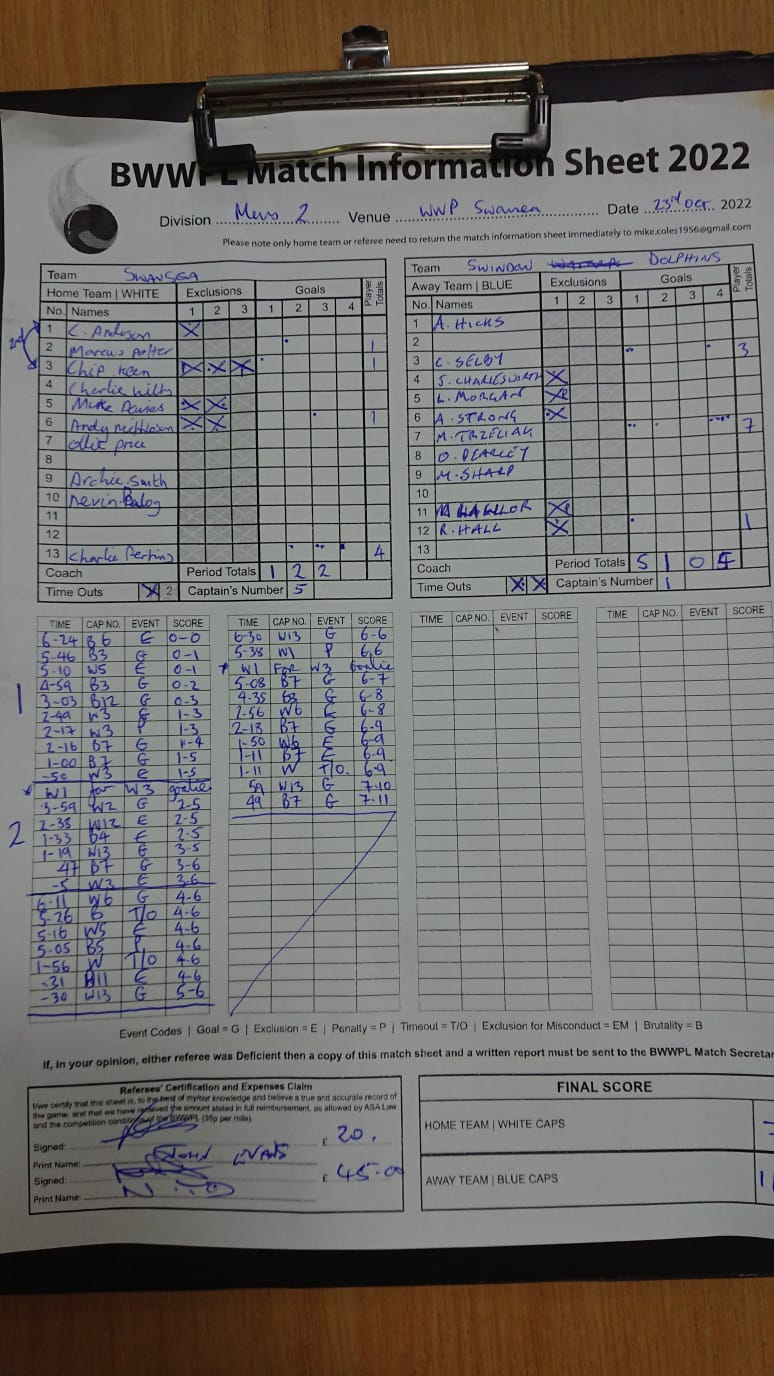 BWWPL Match Information Sheet 2022
Division Mens 2 Venue WWP Swansea Date 23rd Oct 2022
Please note only home team or referee need to return the match information sheet immediately to mike.coles1956@gmail.com
Team SWANSEA
Home Team | WHITE Exclusions Goals Player Totals
No. Names 1 2 3 1 2 3 4
1 C. Anderson X
2 Marcus Potter 1
3 Chip Keen X X X 1
4 Charlie
5 Mike Davies X X
6 Andy X X 1
7 Ollie Price
8
9 Archie Smith
10
11
12
13 Charlie Perkins 4
Coach Period Totals 1 2 2
Time Outs X 2 Captain's Number 5
Team SWINDON DOLPHINS
Away Team | BLUE Exclusions Goals Player Totals
No. Names 1 2 3 1 2 3 4
1 A. HICKS
2
3 C. SELBY 3
4 S. CHARLESWORTH X
5 L. MORGAN X
6 A. STRONG X
7 M. TRZELIAK 7
8 O. DEARLEY
9 M. SHARP
10
11 X
12 R. HALL X 1
13
Coach Period Totals 5 1 0
Time Outs X X Captain's Number 1
TIME CAP NO. EVENT SCORE
6-24 B6 E 0-0
5-46 B3 G 0-1
5-10 W5 E 0-1
4-59 B3 G 0-2
3-03 B12 G 0-3
2-49 W3 G 1-3
2-17 W3 P 1-3
2-16 B7 G 1-4
1-00 B7 G 1-5
-50 W3 E 1-5
W1 for W3 goalie
3-59 W2 G 2-5
2-38 W12 E 2-5
1-33 B4 E 2-5
1-19 W13 G 3-5
47 B7 G 3-6
-5 W3 E 3-6
6-11 W6 G 4-6
5-26 B T/O 4-6
5-16 W5 E 4-6
5-05 B5 4-6
1-56 W T/O 4-6
-31 B11 E 4-6
-30 W13 G 5-6
1
2
TIME CAP NO. EVENT SCORE
6-30 W13 G 6-6
5-38 W1 P 6,6
W1 FOR W3 Goalie
5-08 B7 G 6-7
4-35 B3 G 6-8
2-56 W6 E 6-8
2-18 B7 G 6-9
1-50 W6 E 6-9
1-11 B7 6-9
1-11 W T/O. 6-9
59 W13 G 7-10
49 B7 G 7-11
TIME CAP NO. EVENT SCORE
TIME CAP NO. EVENT SCORE
Event Codes | Goal = G | Exclusion = E | Penalty = P | Timeout = T/O | Exclusion for Misconduct = EM | Brutality = B
If, in your opinion, either referee was Deficient then a copy of this match sheet and a written report must be sent to the BWWPL Match
Referees' Certification and Expenses Claim
I/we certify that this sheet is, to the best of my/our knowledge and believe a true and accurate record of
the game, and that we have received the amount stated in full reimbursement, as allowed by ASA Law
and the competition conditions of the BWWPL (35p per mile).
Signed: £ 20.
Print Name: JOHN EVANS
Signed: £ 45.00
Print Name:
FINAL SCORE
HOME TEAM | WHITE CAPS
AWAY TEAM | BLUE CAPS